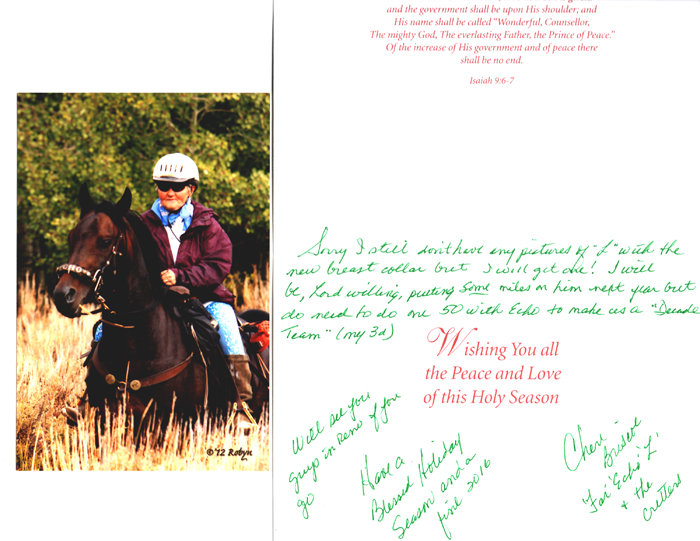 and the government shall be upon His shoulder; and
His name shall be called "Wonderful, Counsellor,
The mighty God, The everlasting Father, the Prince of Peace."
Of the increase of His government and of peace there
shall be no end.
Isaiah 9:6-7
Sorry I still don't have any pictures of "L" with the
new breast collar but I will get one! I will
be, Lord willing, putting some miles on him next year but
do need to do one 50 with Echo to make us a "Decade
Team" (my 3d)
Wishing You all
the Peace and Love
of this Holy Season
Will see you
guys in Reno if you
go
Have a
Blessed Holiday
Season and a
fine 2016
Cheri -
Briscoe
Echo 'L'
+ the
Critters
© '12 Robyn